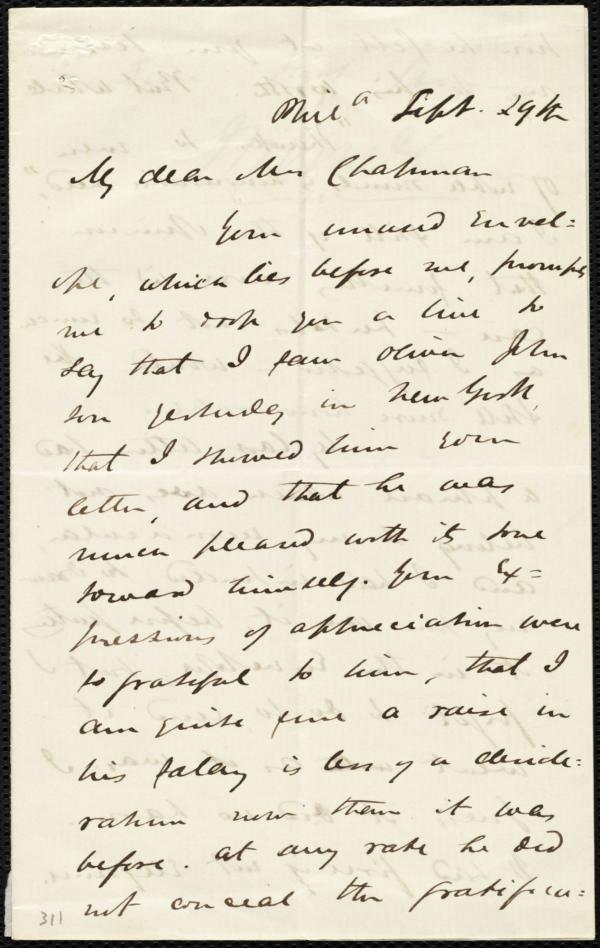 Phila Sept. 29th
My dear Mrs Chapman
Your unused envel=
ope, which lies before me, prompts
me to drop you a line to
say that I saw Oliver John
son yesterday in New York,
that I showed him your
letter, and that he was
much pleased with its tone
toward himself. Your ex=
pressions of appreciation were
so grateful to him, that I
am quite sure a raise in
his salary is less of a deside=
ratum now than it was
before. At any rate he did
not conceal the gratifica=
311